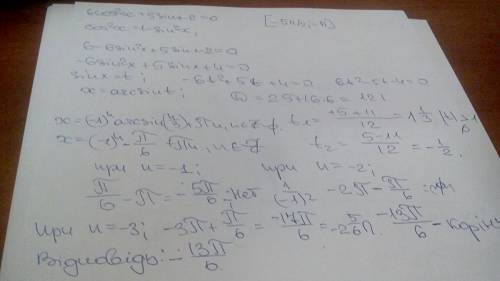 6cos²x+5sinx-2=0 [-5π/2;-π]
cos²x=1-sin²x;
6-6sin²x+5sinx-2=0
-6sin²x+5sinx+4=0
sinx=t; -6t²+5t+4=0 6t²-5t-4=0
x=arcsint; D=25+16·6=121
x=(-1)ⁿarcsin(4/3)+πn, n∈Z-∅. t₁=(+5+11)/12=1 1/3
x=(-1)ⁿ·-π/6+πn, n∈Z t₂=(5-11)/12=-1/2.
при n=-1; при n=-2;
π/6-π=-5π/6-Нет -2π-π/6=
при n=-3; -3π+π/6=-17π/6=-2 5/6π. -13π/6-Корінь
Відповідь: -13π/6.